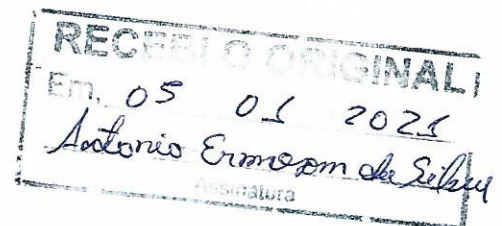 RECEBI O ORIGINAL
Em, 05 01 2021
Antonio Ermosom da Silva
Assinatura